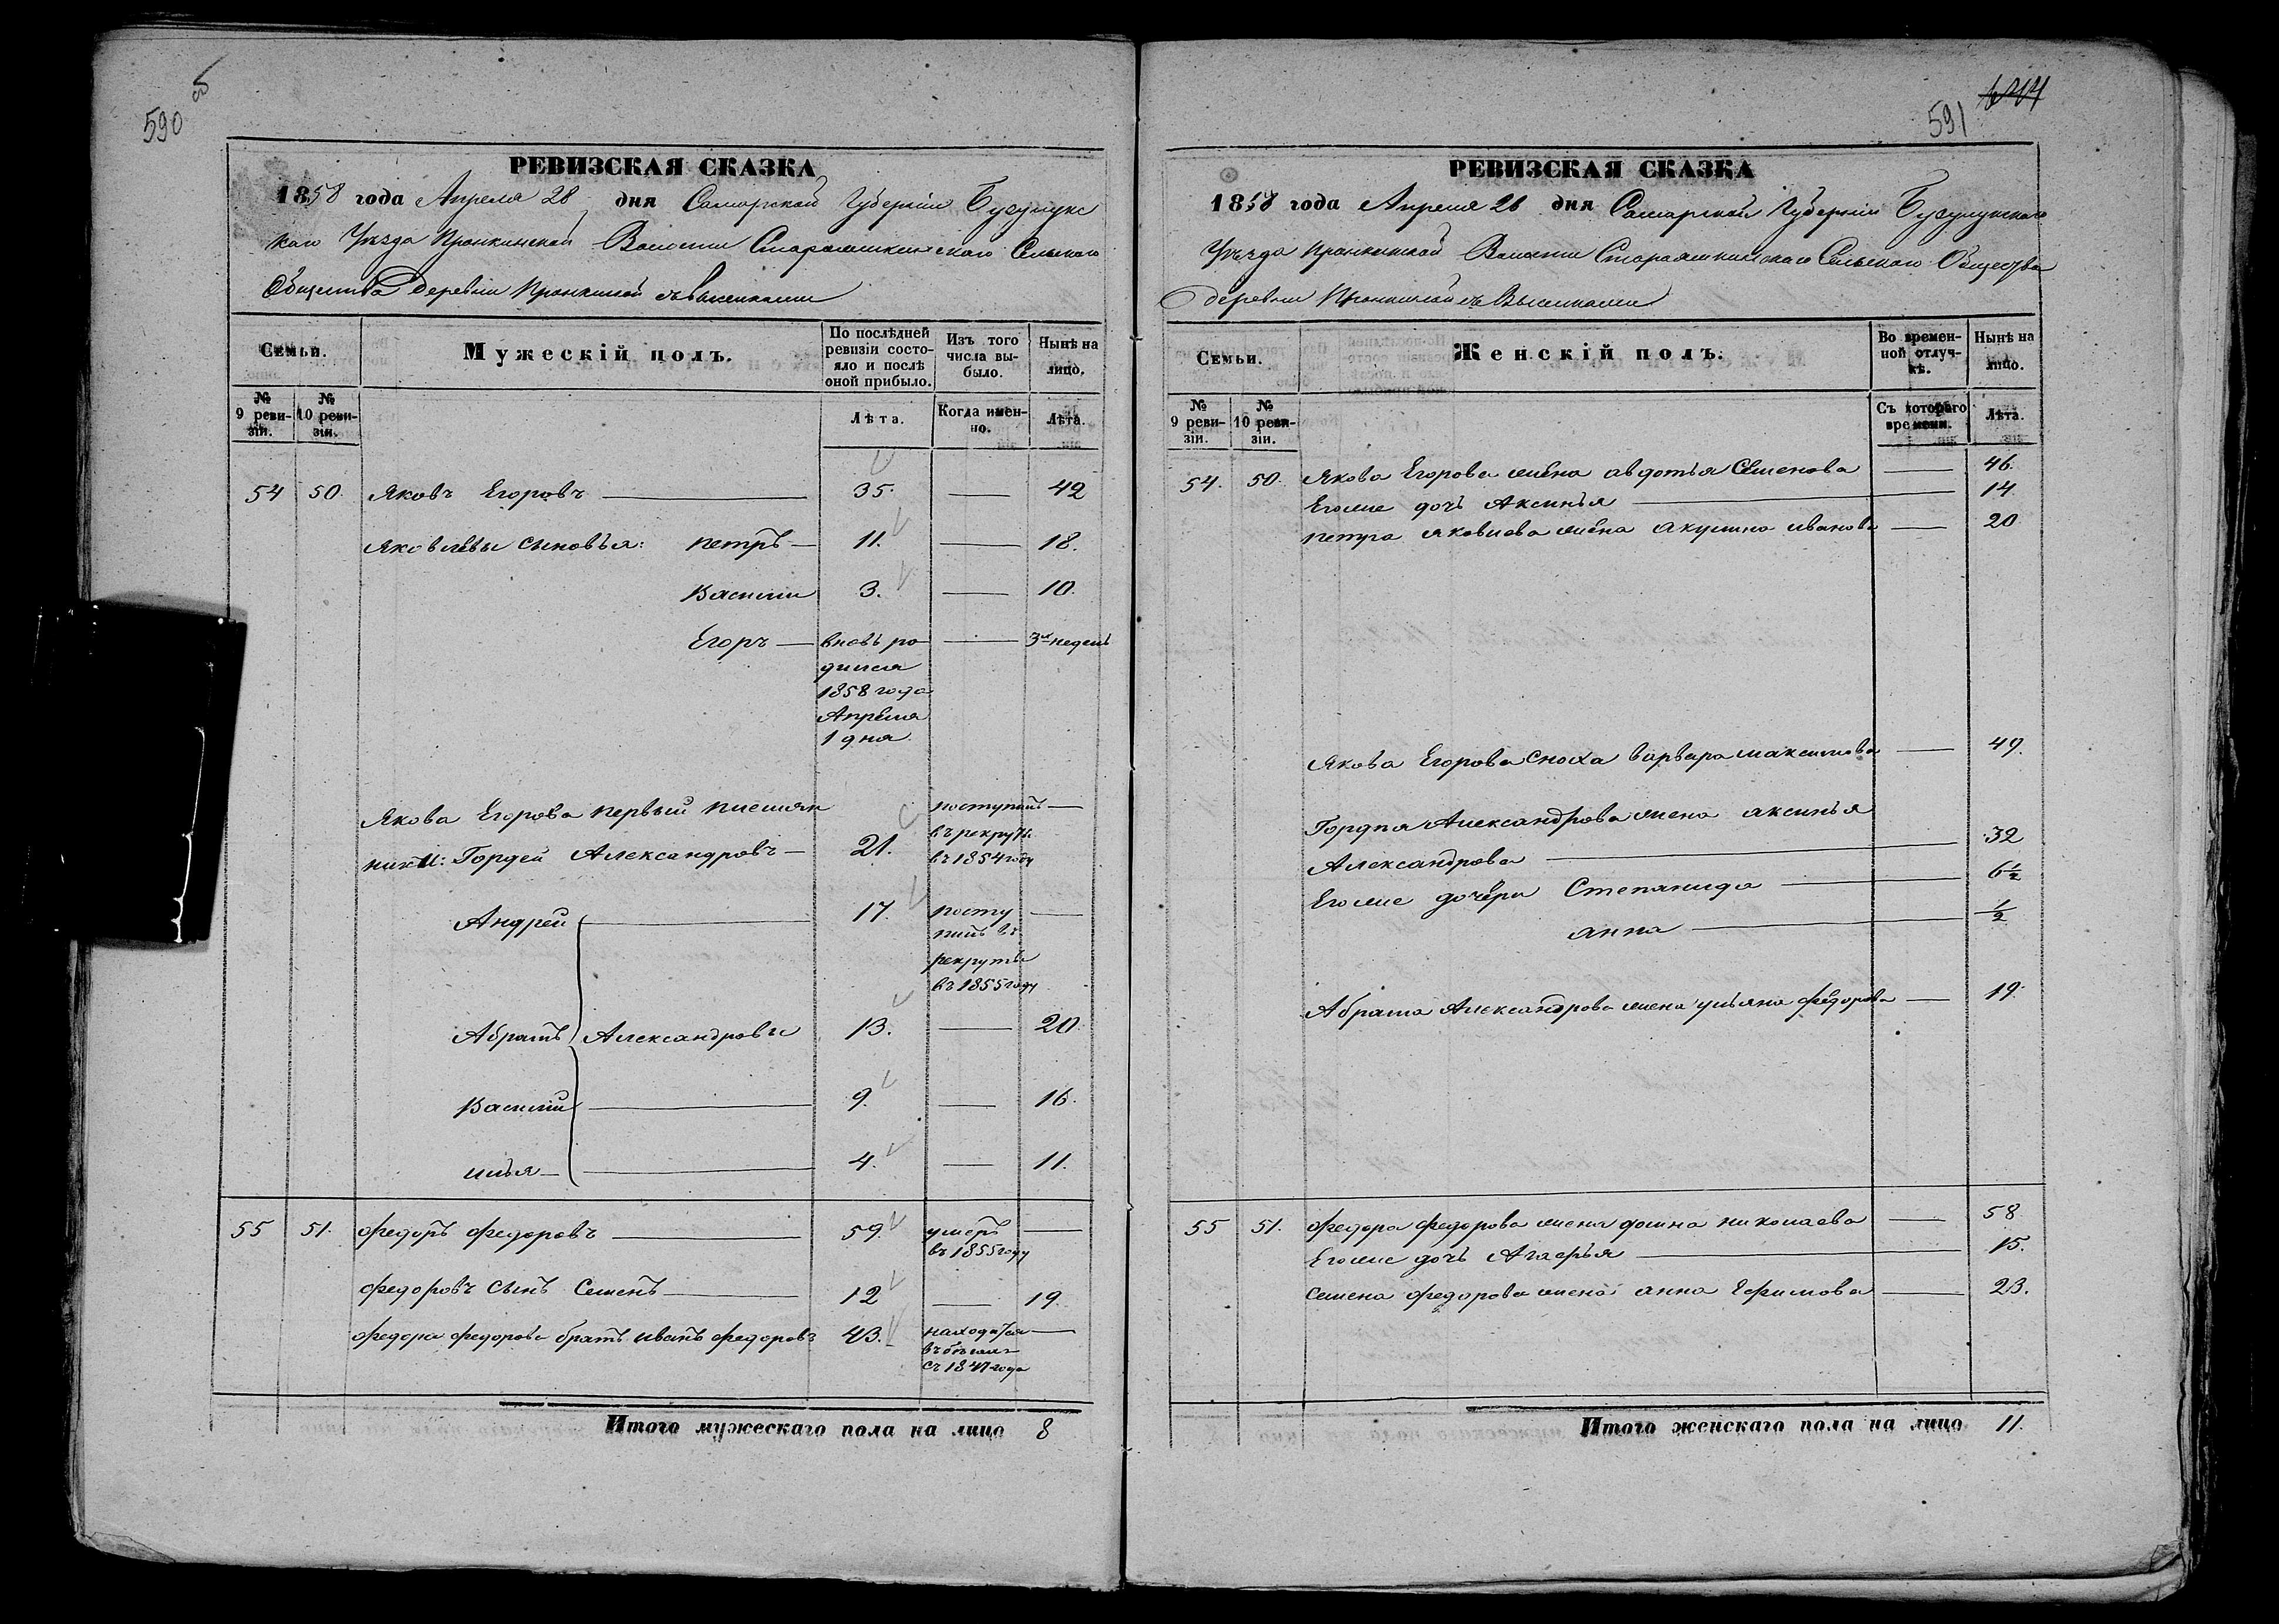 590
РЕВИЗСКАЯ СКАЗКА
1858 года Апреля 28 дня Самарской Губернии Бузулукс
каго Уѣзда Пронкинской Волости Стараяшкинскаго Сельскаго
Общества Деревни Пронкиной съ выселками
Семьи.
Мужескій полъ.
По послѣдней ревизіи состояло и послѣ оной прибыло.
Изъ того числа выбыло.
Нынѣ на лицо.
№ 9 ревизіи.
№ 10 ревизіи.
Лѣта.
Когда именно.
Лѣта.
54 50. Яковъ Егоровъ 35. 42
Яковлевы сыновья: Петръ 11. 18.
Василии 3. 10.
Егоръ вновь ро 3 недель
дился
1858 года
Апреля
1 дня
Якова Егорова первый племян поступилъ
въ рекруты
ники: Гордей Александровъ 21. въ 1854 году
Андрей 17. посту
пилъ въ
рекруты
въ 1855 году
Абрамъ Александровы 13. 20.
Василий 9. 16.
Илья 4. 11.
55 51. Федоръ Федоровъ 59. умеръ
въ 1855 году
Федоровъ сынъ Семенъ 12 19.
Федора Федорова братъ Иванъ Федоровъ 43. находится
въ бегахъ
съ 1847 года
Итого мужескаго пола на лицо 8
591
РЕВИЗСКАЯ СКАЗКА
1858 года Апреля 28 дня Самарской Губернии Бузулукскаго
Уѣзда Пронкинской Волости Стараяшкинскаго Сельскаго Общества
Деревни Пронкиной съ Выселками
Семьи.
Женскій полъ.
Во временной отлучкѣ.
Нынѣ на лицо.
№ 9 ревизіи.
№ 10 ревизіи.
Съ котораго времени.
Лѣта.
54. 50. Якова Егорова жена Авдотья Семенова 46.
Егоже дочь Аксинья 14.
Петра Яковлева жена Акулина Иванова 20
Якова Егорова сноха Варвара Максимова 49.
Гордея Александрова жена Аксинья
Александрова 32
Егоже дочери Степанида 6½
Анна ½
Абрама Александрова жена Ульяна Федорова 19.
55 51. Федора Федорова жена Домна Николаева 58
Егоже дочь Агафья 15.
Семена Федорова жена Анна Ефимова 23.
Итого женскаго пола на лицо 11.